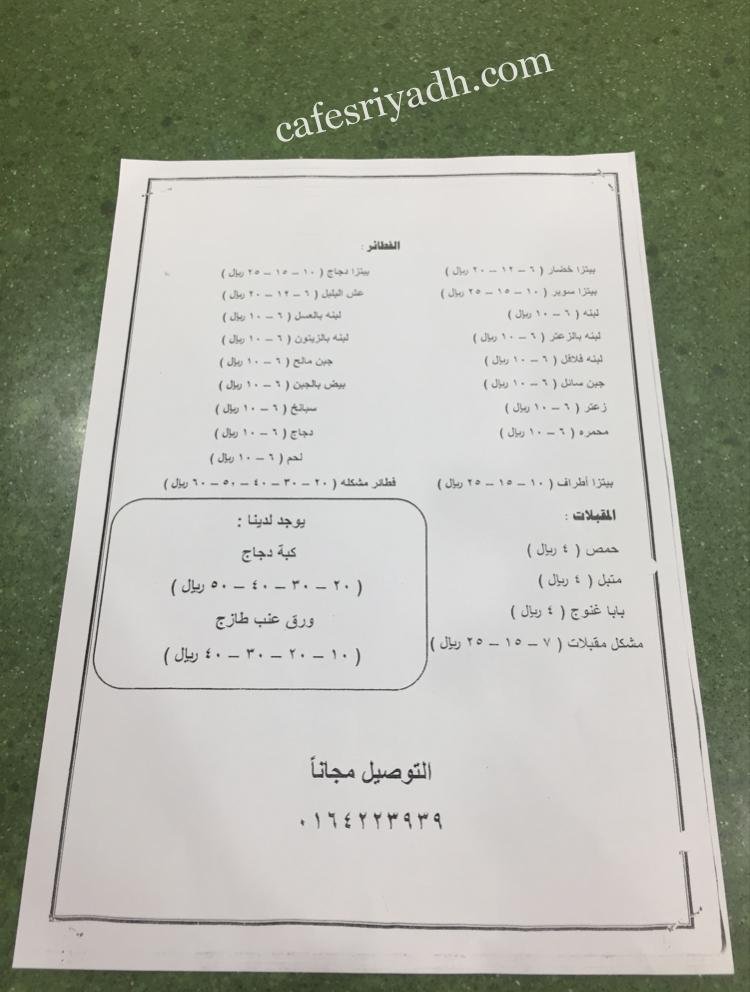 cafesriyadh.com
الفطائر :
بيتزا خضار ( ٦ – ١٢ – ٢٠ ريال ) بيتزا دجاج ( ١٠ – ١٥ – ٢٥ ريال )
بيتزا سوبر ( ١٠ – ١٥ – ٢٥ ريال ) عش البلبل ( ٦ – ١٢ – ٢٠ ريال )
لبنه ( ٦ – ١٠ ريال ) لبنه بالعسل ( ٦ – ١٠ ريال )
لبنه بالزعتر ( ٦ – ١٠ ريال ) لبنه بالزيتون ( ٦ – ١٠ ريال )
لبنه فلافل ( ٦ – ١٠ ريال ) جبن مالح ( ٦ – ١٠ ريال )
جبن سائل ( ٦ – ١٠ ريال ) بيض بالجبن ( ٦ – ١٠ ريال )
زعتر ( ٦ – ١٠ ريال ) سبانخ ( ٦ – ١٠ ريال )
محمره ( ٦ – ١٠ ريال ) دجاج ( ٦ – ١٠ ريال )
لحم ( ٦ – ١٠ ريال )
بيتزا أطراف ( ١٠ – ١٥ – ٢٥ ريال ) فطائر مشكله ( ٢٠ – ٣٠ – ٤٠ – ٥٠ – ٦٠ ريال )
المقبلات :
حمص ( ٤ ريال )
متبل ( ٤ ريال )
بابا غنوج ( ٤ ريال )
مشكل مقبلات ( ٧ – ١٥ – ٢٥ ريال )
يوجد لدينا :
كبة دجاج
( ٢٠ – ٣٠ – ٤٠ – ٥٠ ريال )
ورق عنب طازج
( ١٠ – ٢٠ – ٣٠ – ٤٠ ريال )
التوصيل مجاناً
٠١٦٤٢٢٣٩٣٩